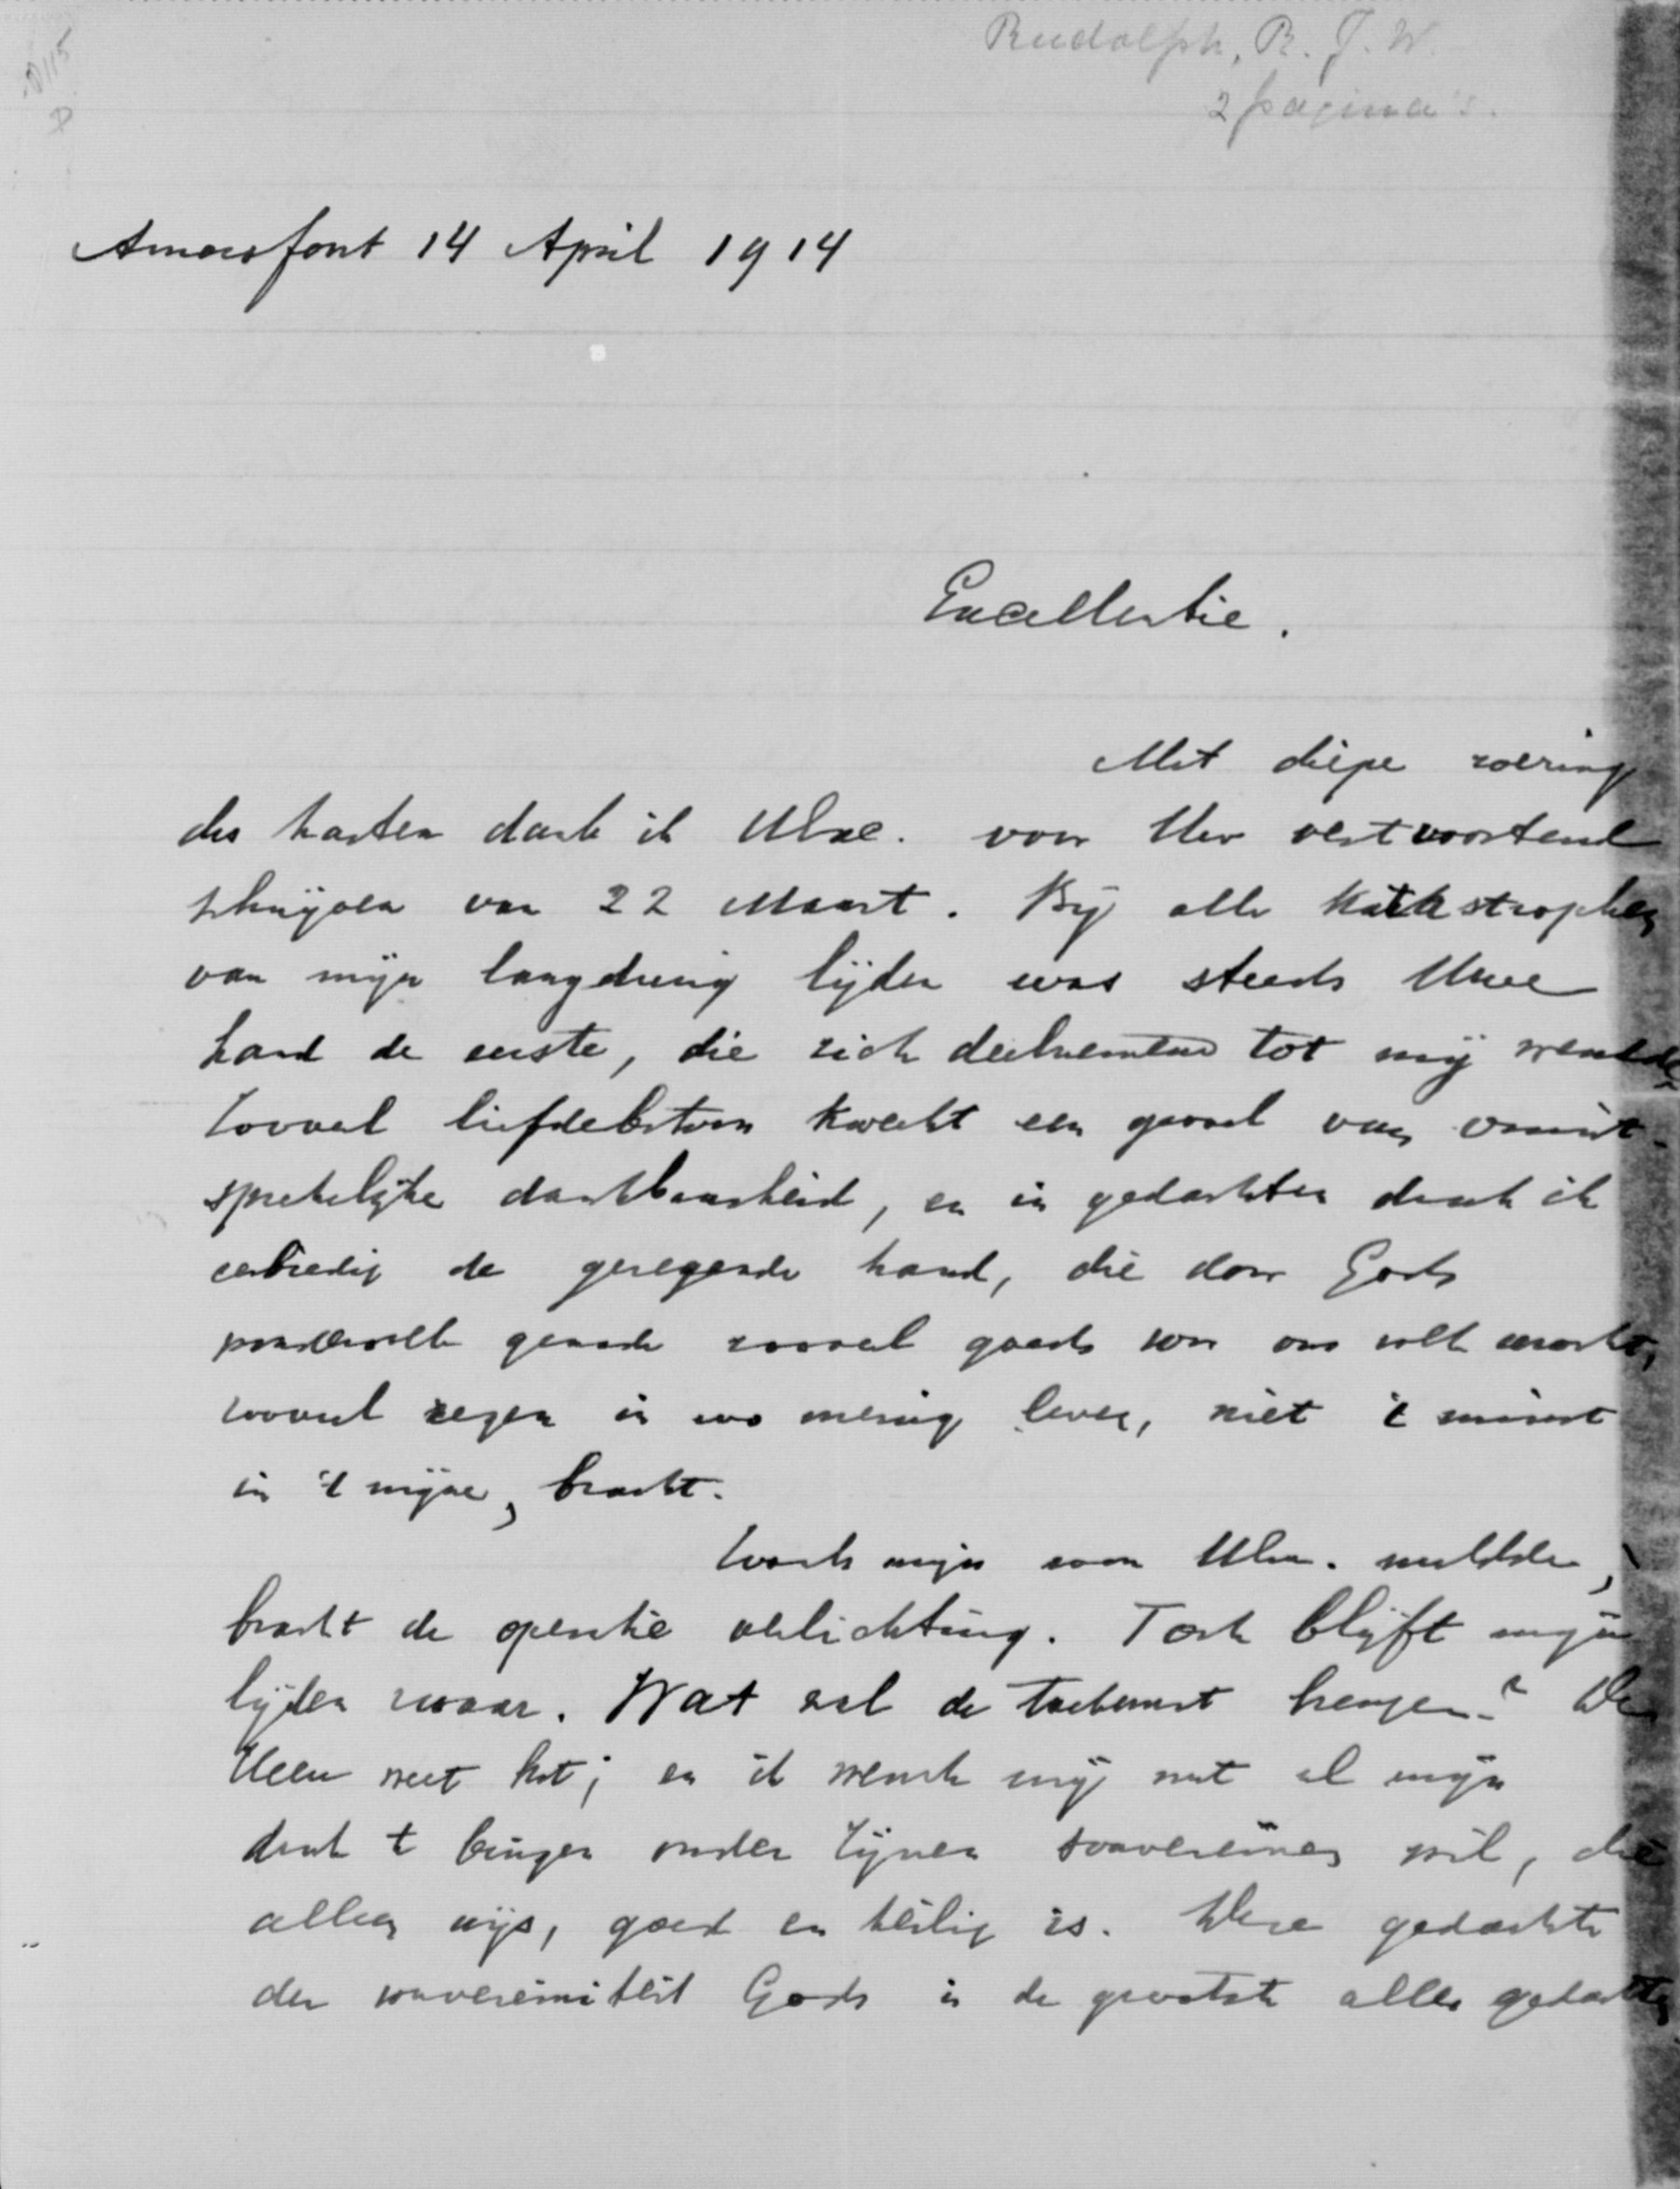 Rudolph, R. J. W.
2 pagina's.
Amersfoort 14 April 1914
Excellentie.
Met diepe roering
des harten dank ik UExc. voor Uw
schrijven van 22 Maart. Bij alle katastrophen
van mijn langdurig lijden was steeds Uwe
hand de eerste, die zich deelnemend tot mij wendde.
Zooveel liefdebetoon kweekt een gevoel van onuit-
sprekelijke dankbaarheid, en in gedachten druk ik
eerbiedig de gezegende hand, die door Gods
wondervolle genade zooveel goeds voor ons volk wrocht,
zooveel zegen in zoo menig leven, niet 't minst
in 't mijne, bracht.
Zooals mijn zoon UExc. meldde,
bracht de operatie verlichting. Toch blijft mijn
lijden zwaar. Wat zal de toekomst brengen? De
Heer weet het; en ik wensch mij met al mijn
druk te buigen onder Zijnen souvereinen wil, die
alleen wijs, goed en heilig is. Deze gedachte
der souvereiniteit Gods is de grootste aller gedachten